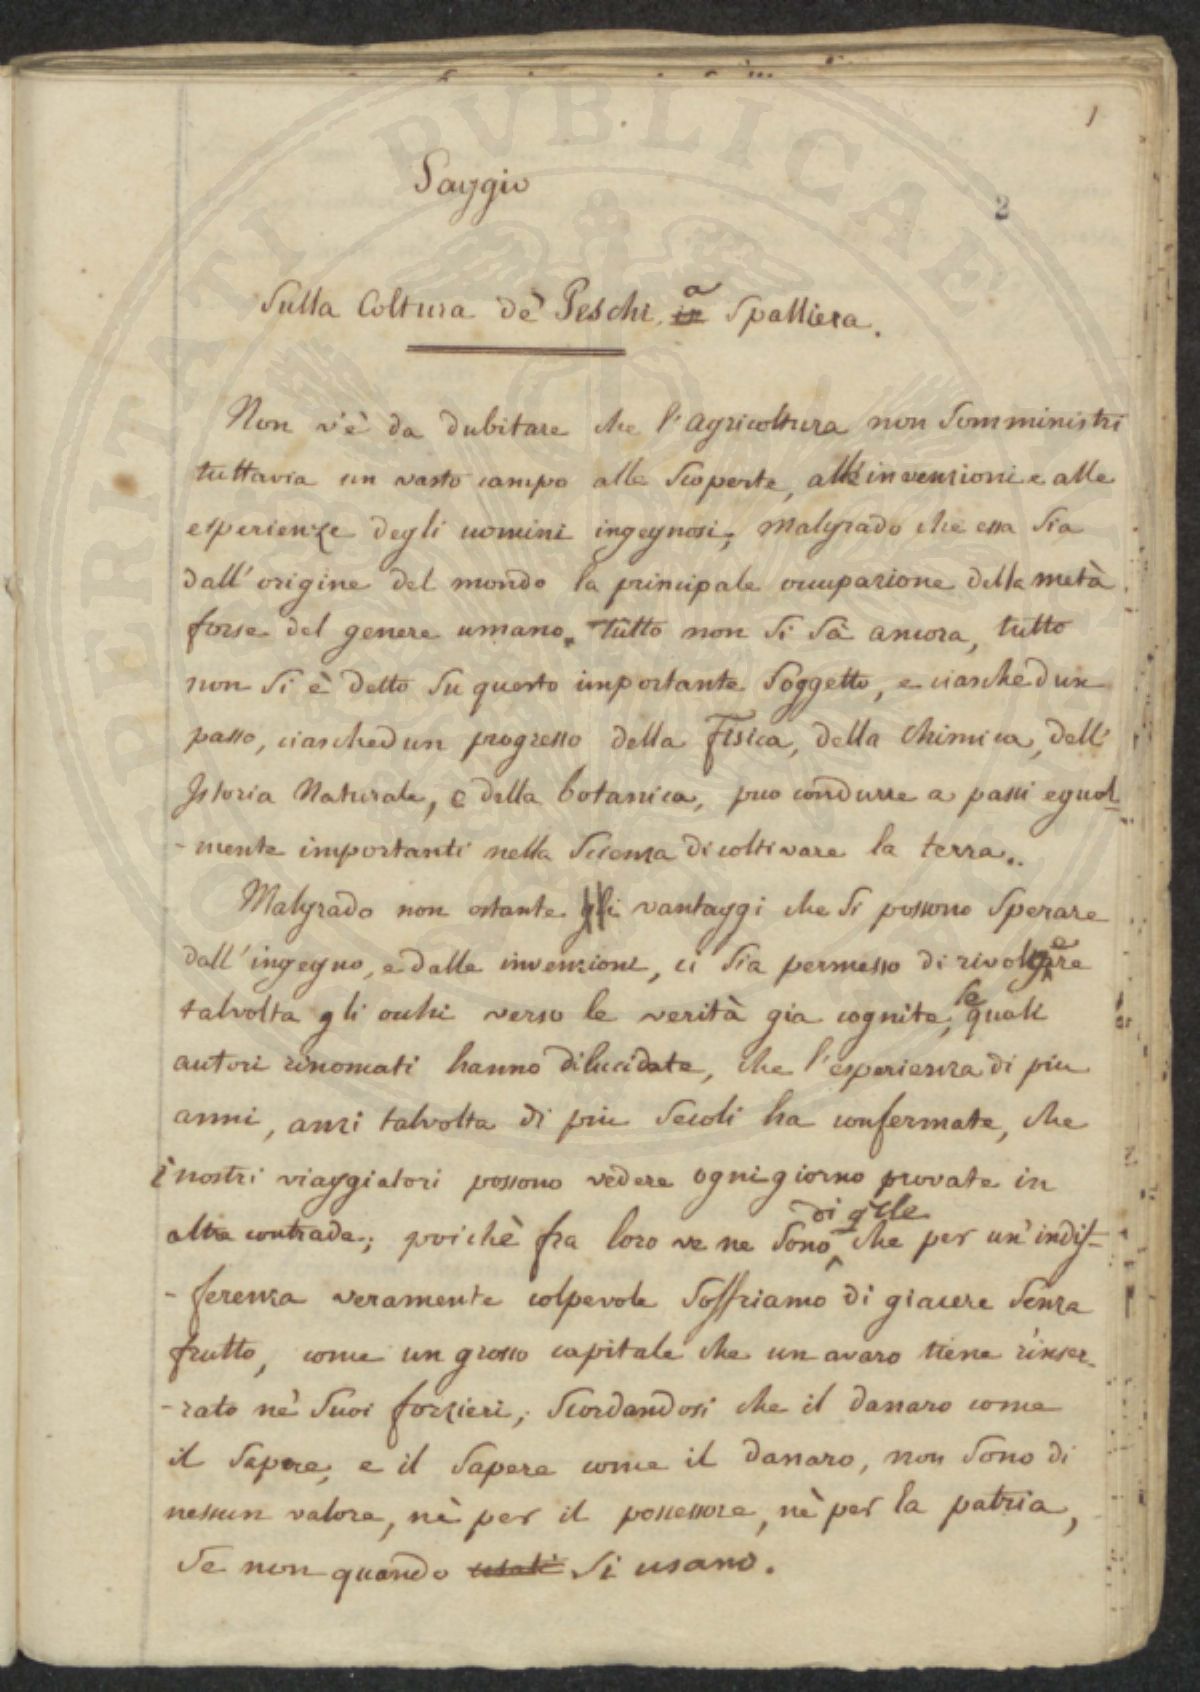 1
2
Saggio
Sulla Coltura de' Peschi, in a Spalliera.
Non v'è da dubitare che l'agricoltura non somministri
tuttavia un vasto campo alle scoperte, all'invenzioni e alle
esperienze degli uomini ingegnosi; malgrado che essa sia
dall'origine del mondo la principale occupazione della metà
forse del genere umano. Tutto non si sà ancora, tutto
non si è detto su questo importante soggetto, e ciaschedun
passo, ciaschedun progresso della Fisica, della Chimica, dell'
Istoria Naturale, e della botanica, puo condurre a passi egual-
-mente importanti nella scienza di coltivare la terra..
Malgrado non ostante gli vantaggi che si possono sperare
dall'ingegno, e dalle invenzioni, ci sia permesso di rivolgere
talvolta gli occhi verso le verità gia cognite, le quali
autori rinomati hanno dilucidate, che l'esperienza di piu
anni, anzi talvolta di piu secoli ha confermate, che
i nostri viaggiatori possono vedere ogni giorno provate in
altre contrade; poichè fra loro ve ne sono di q.lle che per un'indif-
-ferenza veramente colpevole soffriamo di giacere senza
frutto, come un grosso capitale che un avaro tiene rinser-
-rato ne' suoi forzieri, scordandosi che il danaro come
il sapere, e il sapere come il danaro, non sono di
nessun valore, nè per il possessore, nè per la patria,
se non quando usati si usano.
PERITATI PVBLICAE